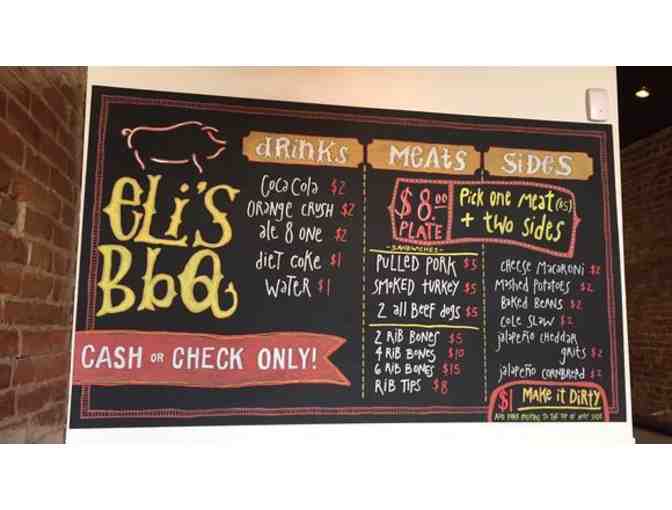 Eli's
BbQ
CASH or CHECK ONLY!
DRINKS
Coca Cola $2
Orange Crush $2
ale 8 one $2
diet coke $1
Water $1
MEATS
SIDES
$8.00
PLATE
Pick one meat($5)
+ two sides
-SANDWICHES-
PULLED PORK $5
SMOKED turkey $5
2 all Beef dogs $5
2 RIB BONES $5
4 RIB BONES $10
6 RIB BONES $15
RIB TIPS $8
cheese macaroni $2
Mashed Potatoes $2
Baked Beans $2
cole slaw $2
jalapeño cheddar
grits $2
jalapeño cornbread $2
$1 MAKE it DIRTY
ADD PORK TO THE TOP OF SIDE